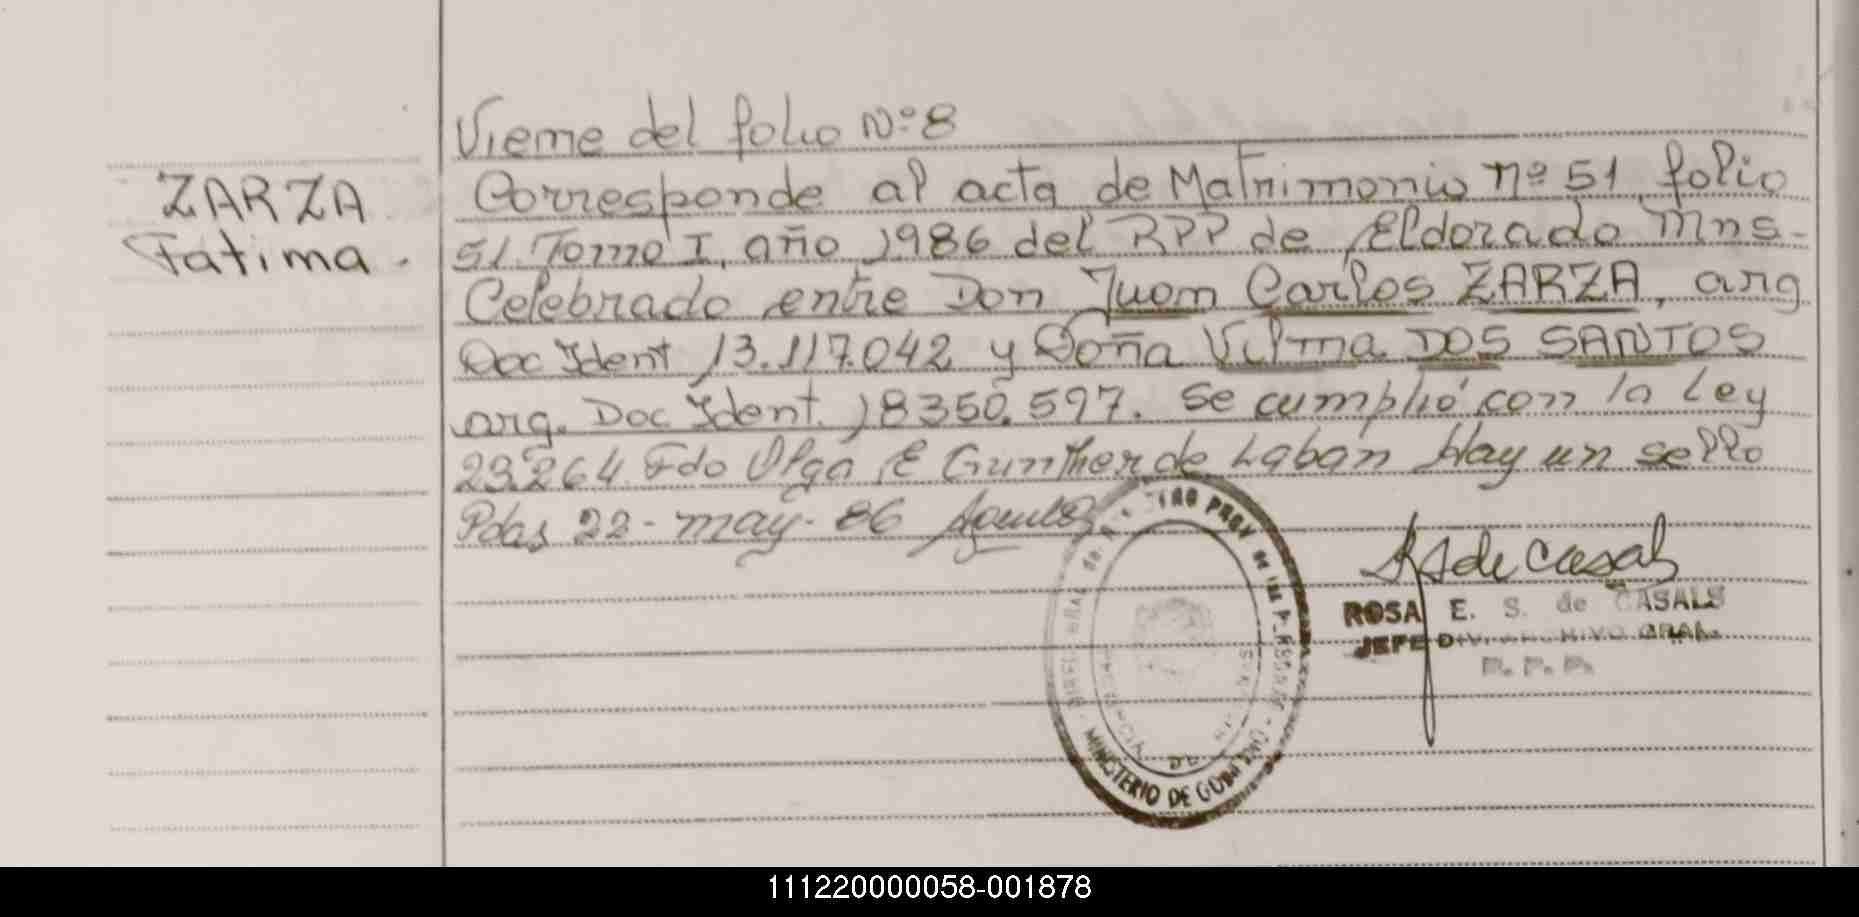 Viene del folio Nº 8
ZARZA
Fatima.
Corresponde al acta de Matrimonio nº 51, folio
51. Tomo I, año 1986 del RPP de Eldorado Mns-
Celebrado entre Don Juan Carlos ZARZA, arg
Doc Ident 13.117.042 y Doña Vilma DOS SANTOS
arg. Doc Ident. 18350.597. Se cumplió con la Ley
23.264. Fdo Olga E Gunther de Laban Hay un sello
Pdas 22-may-86
ROSA E. S. de CASALS
JEFE DIV. ARCHIVO GRAL.
R. P. P.
MINISTERIO DE GOBIERNO
111220000058-001878